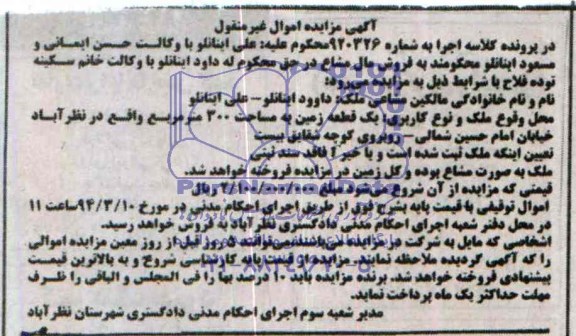 آگهی مزایده اموال غیرمنقول
در پرونده کلاسه اجرا به شماره ۹۲۰۳۲۶محکوم علیه: علی اینانلو با وکالت حسن ایمانی و
مسعود اینانلو محکومند به فروش مال مشاع در حق محکوم له داود اینانلو با وکالت خانم سکینه
توده فلاح با شرایط ذیل به مزایده می‌رود:
نام و نام خانوادگی مالکین مشاعی ملک: داوود اینانلو – علی اینانلو
محل وقوع ملک و نوع کاربری: یک قطعه زمین به مساحت ۳۰۰ مترمربع واقع در نظرآباد
خیابان امام حسین شمالی – روبروی کوچه شقایق بیست
تعیین اینکه ملک ثبت شده است و یا خیر: فاقد سند ثبتی
ملک به صورت مشاع بوده و کل زمین در مزایده فروخته خواهد شد.
قیمتی که مزایده از آن شروع می‌شود مبلغ ریال
اموال توقیفی با قیمت پایه بشرح فوق از طریق اجرای احکام مدنی در مورخ ۹۴/۳/۱۰ساعت ۱۱
در محل دفتر شعبه اجرای احکام مدنی دادگستری نظرآباد به فروش خواهد رسید.
اشخاصی که مایل به شرکت در مزایده می‌باشند می‌توانند ۵ روز قبل از روز معین مزایده اموالی
را که آگهی گردیده ملاحظه نمایند. مزایده از قیمت پایه کارشناسی شروع و به بالاترین قیمت
پیشنهادی فروخته خواهد شد. برنده مزایده باید ۱۰ درصد بها را فی المجلس و الباقی را ظرف
مهلت حداکثر یک ماه پرداخت نماید.
مدیر شعبه سوم اجرای احکام مدنی دادگستری شهرستان نظرآباد